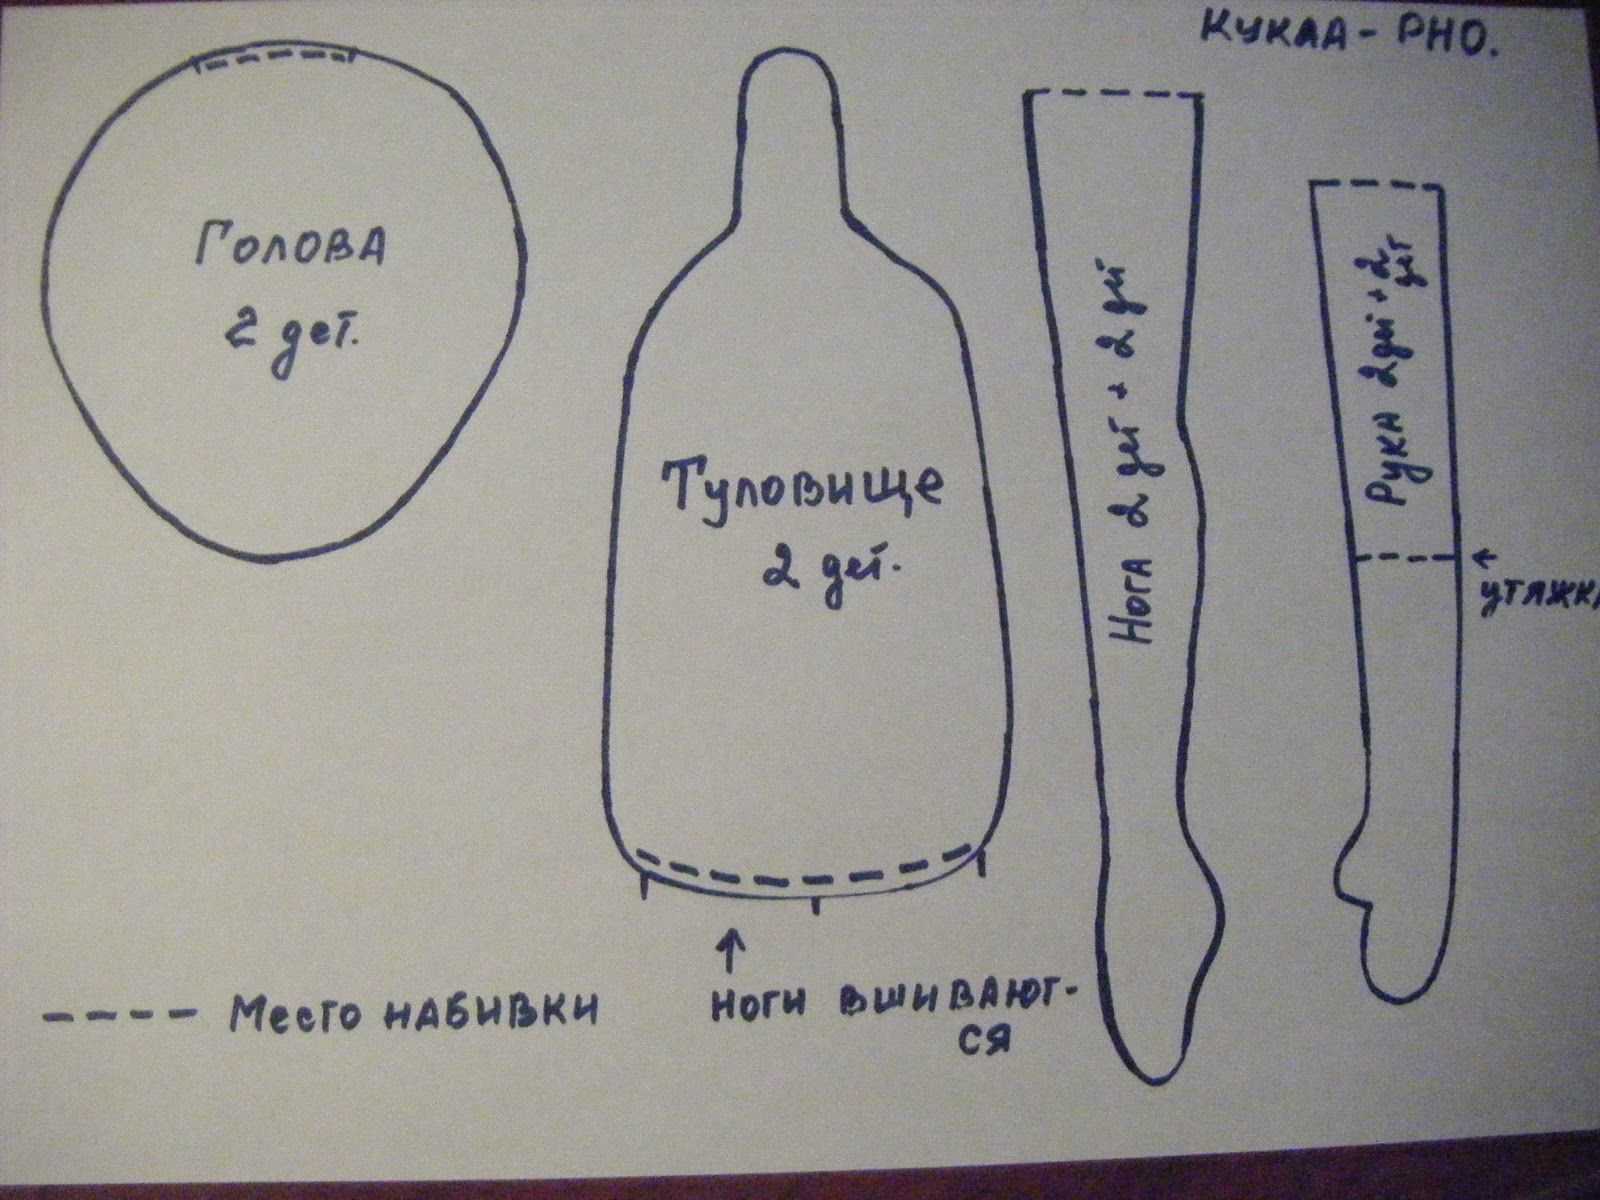 КУКЛА - РНО.
Голова
2 дет.
Туловище
2 дет.
Нога 2 дет + 2 дет
Рука 2 дет + 2
дет
утяжка
Место набивки
ноги вшивают-
ся